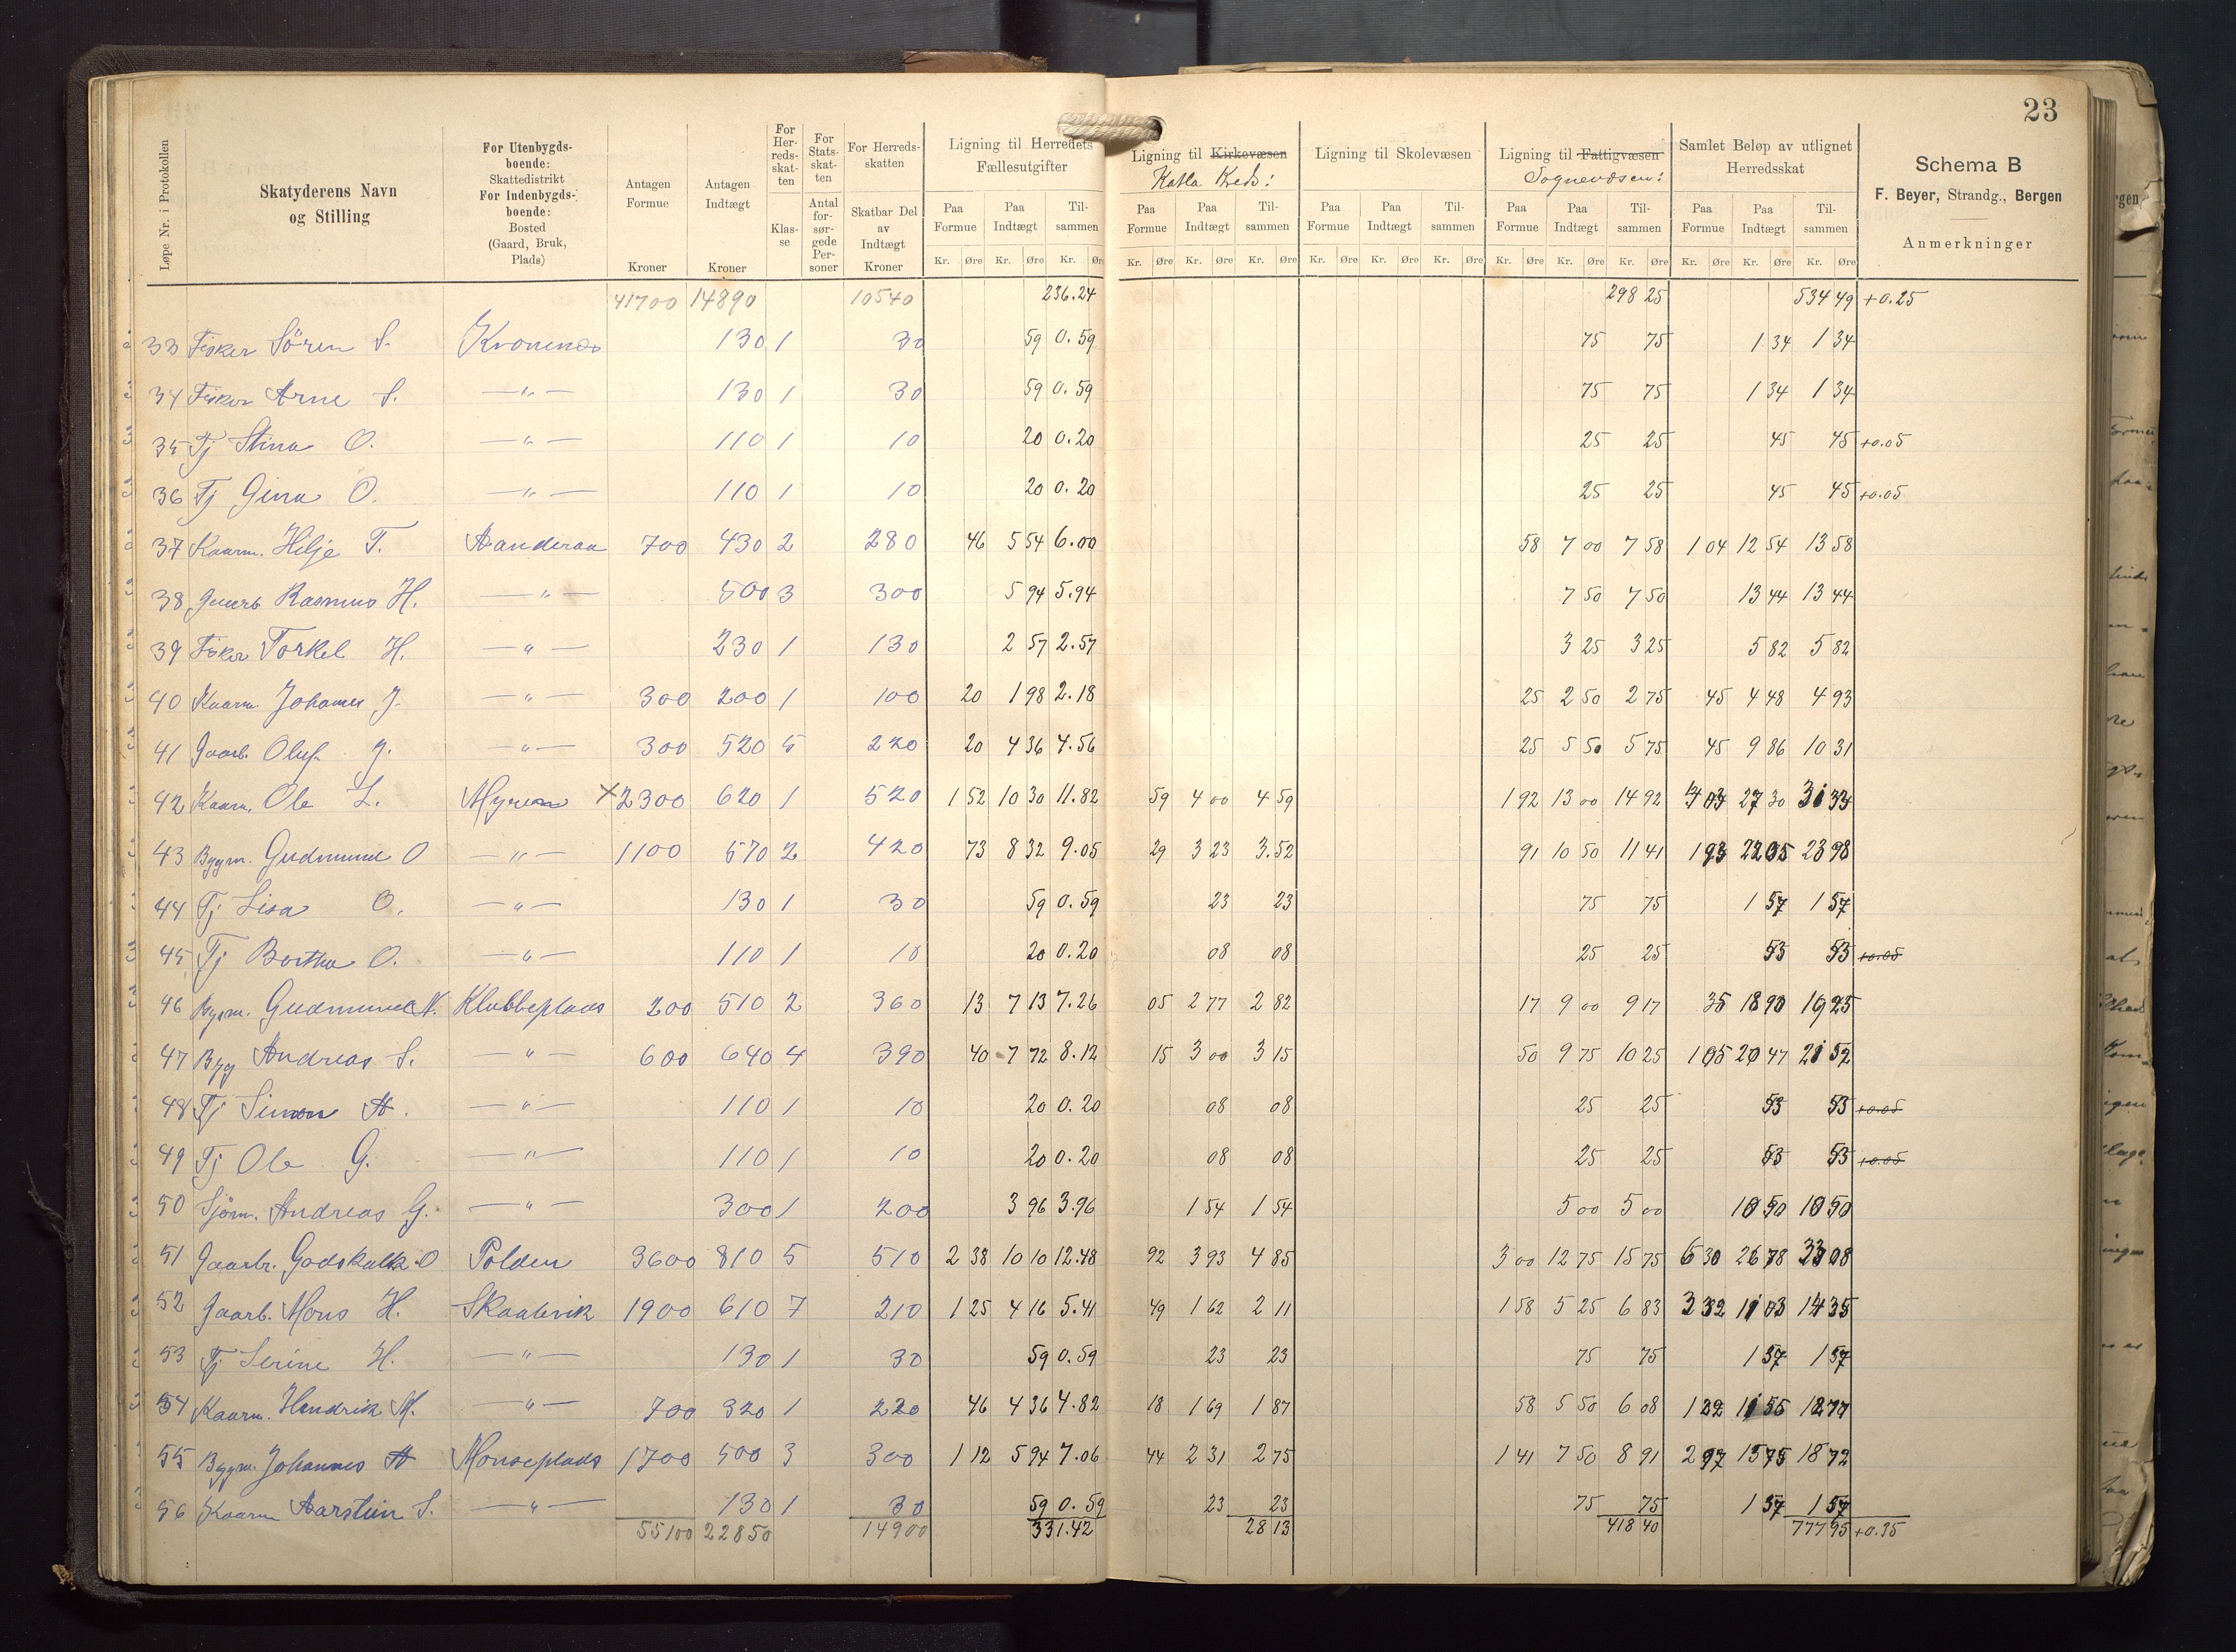 23
Løpe Nr. i Protokollen
Skatyderens Navn og Stilling
For Utenbygds-boende: Skattedistrikt For Indenbygds-boende: Bosted (Gaard, Bruk, Plads)
Antagen Formue Kroner
Antagen Indtægt Kroner
For Herreds-skatten Klas-se
For Stats-skat-ten Antal for-sør-gede Per-soner
For Herreds-skatten Skatbar Del av Indtægt Kroner
Ligning til Herredets Fællesutgifter
Ligning til Kirkevæsen
Katla Kreds:
Ligning til Skolevæsen
Ligning til Fattigvæsen
Sognevæsen:
Samlet Beløp av utlignet Herredsskat
Paa Formue Paa Indtægt Til-sammen
Kr. Øre Kr. Øre Kr. Øre
Schema B
F. Beyer, Strandg., Bergen
Anmerkninger
41700 14890 10540 236.24 298 25 534 49 +0.25
33 Fisker Sören S. Kronenes 130 1 30 59 0.59 75 75 1 34 1 34
34 Fisker Arne S. —"— 130 1 30 59 0.59 75 75 1 34 1 34
35 Tj Stina O. —"— 110 1 10 20 0.20 25 25 45 45 +0.05
36 Tj Gina O. —"— 110 1 10 20 0.20 25 25 45 45 +0.05
37 Kaarm. Hilje T. Aanderaa 700 430 2 280 46 5 54 6.00 58 7 00 7 58 1 04 12 54 13 58
38 Rasmus H. —"— 500 3 300 5 94 5.94 7 50 7 50 13 44 13 44
39 Fisker Torkel H. —"— 230 1 130 2 57 2.57 3 25 3 25 5 82 5 82
40 Kaarm. Johannes J. —"— 300 200 1 100 20 1 98 2.18 25 2 50 2 75 45 4 48 4 93
41 Gaarb. Oluf J. —"— 300 520 5 220 20 4 36 4.56 25 5 50 5 75 45 9 86 10 31
42 Kaarm. Ole L. Myren ×2300 620 1 520 1 52 10 30 11.82 59 4 00 4 59 1 92 13 00 14 92 27 30 31 33
43 Bygm. Gudmund O —"— 1100 570 2 420 73 8 32 9.05 29 3 23 3.52 91 10 50 11 41 1 93 22 05 23 98
44 Tj Lisa O. —"— 130 1 30 59 0.59 23 23 75 75 1 57 1 57
45 Tj Bertha O. —"— 110 1 10 20 0.20 08 08 25 25 53 53 +0.05
46 Bygm. Gudmund N. Klubbeplads 200 510 2 360 13 7 13 7.26 05 2 77 2 82 17 9 00 9 17 35 18 90 19 25
47 Byg Andreas S. —"— 600 640 4 390 40 7 72 8.12 15 3 00 3 15 50 9 75 10 25 1 05 20 47 21 52
48 Tj Simon A. —"— 110 1 10 20 0.20 08 08 25 25 53 53 +0.05
49 Tj Ole G. —"— 110 1 10 20 0.20 08 08 25 25 53 53 +0.05
50 Sjøm. Andreas G. —"— 300 1 200 3 96 3.96 1 54 1 54 5 00 5 00 10 50 10 50
51 Gaarbr. Godskalk O Polden 3600 810 5 510 2 38 10 10 12.48 92 3 93 4 85 3 00 12 75 15 75 6 30 26 78 33 08
52 Gaarb. Mons H. Skaalevik 1900 610 7 210 1 25 4 16 5.41 49 1 62 2 11 1 58 5 25 6 83 3 32 11 03 14 35
53 Tj Serine H. —"— 130 1 30 59 0.59 23 23 75 75 1 57 1 57
54 Kaarm. Hendrik M. —"— 700 320 1 220 46 4 36 4.82 18 1 69 1 87 58 5 50 6 08 1 22 11 55 12 77
55 Bygm. Johannes A Monseplads 1700 500 3 300 1 12 5 94 7.06 44 2 31 2 75 1 41 7 50 8 91 2 97 15 75 18 72
56 Kaarm Aarstein S. —"— 130 1 30 59 0.59 23 23 75 75 1 57 1 57
55100 22850 14900 331.42 28 13 418 40 777 95 +0.35